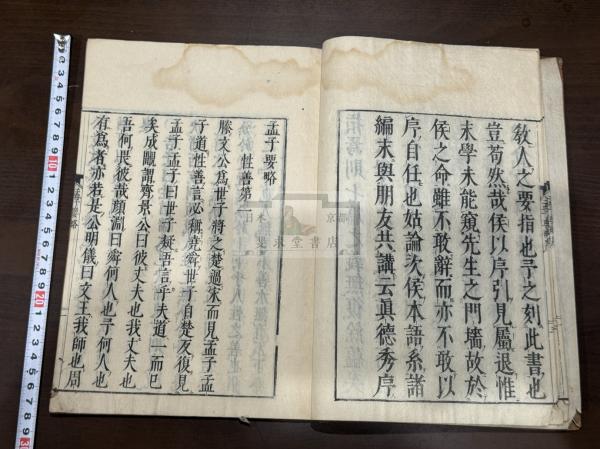 敎人之要指也予之刻此書也
豈苟然哉侯以序引見屬退惟
末學未能窺先生之門墻故於
侯之命雖不敢辭而亦不敢以
序自任也姑論次侯本語系諸
編末與朋友共講云眞德秀序
孟子要略
性善第一
滕文公爲世子將之楚過宋而見孟子孟
子道性善言必稱堯舜世子自楚反復見
孟子孟子曰世子疑吾言乎夫道一而已
矣成覵謂齊景公曰彼丈夫也我丈夫也
吾何畏彼哉顏淵曰舜何人也予何人也
有爲者亦若是公明儀曰文王我師也周
京都
書店